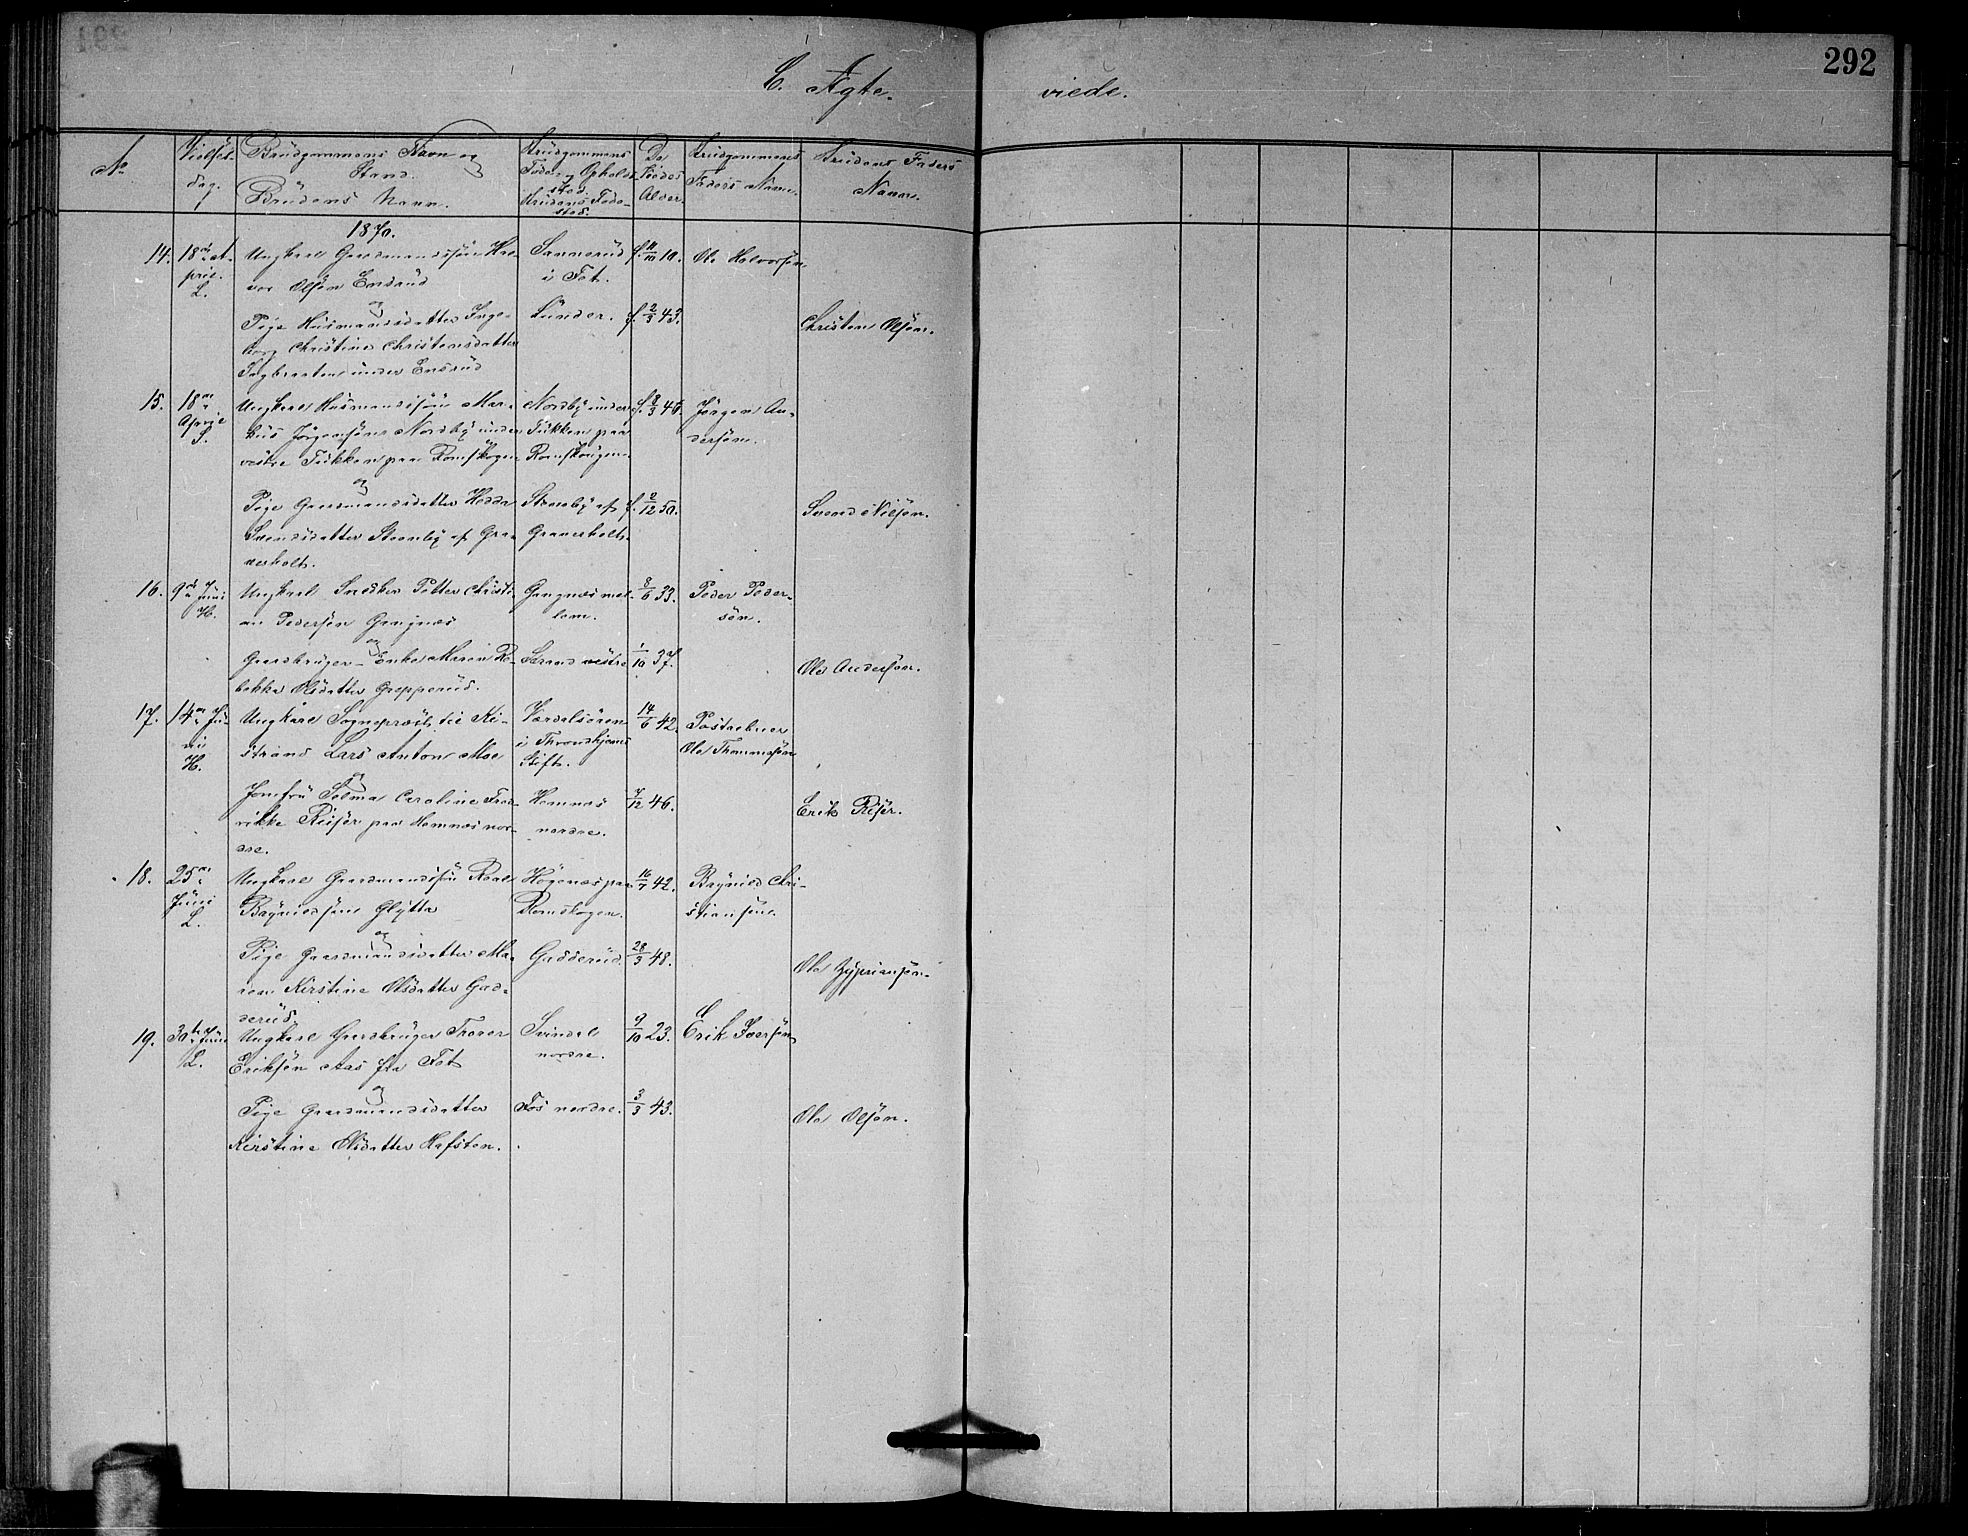 292
C. Ægte-
viede.
No
Vielses-
dag.
Brudgommens Navn og
Stand.
Brudens Navn.
Brudgommens
Føde- og Opholds-
sted.
Brudens Føde-
sted.
De
Viedes
Alder
Brudgommens
Faders Navn.
Brudens Faders
Navn.
1870.
14. 18de A-
pril.
L.
Ungkarl Gaardmandssøn Hal-
vor Olsøn Ensrud
Sannerud
i Føt.
f. 11/10 10.
Ole Halvorsøn
og
Pige Husmandsdatter Inge-
borg Christine Christensdatter
Sagbraaten under Ensrud
Lunder.
f. 2/3 43.
Christen Olsøn.
15. 18de
April
L.
Ungkarl Husmandssøn Mar-
kus Jørgensøn Nordby under
vestre Tukken paa Romskogen
Nordby under
Tukken paa
Romskougen.
f. 8/3 46.
Jørgen An-
dersøn.
og
Pige Gaardmandsdatter Hedda
Svendsdatter Steenby af Gra-
verholt.
Steenby af
Graverholt.
f. 2/12 50.
Svend Nilsøn.
16. 9de Juni
H.
Ungkarl Snedker Petter Christi-
an Pedersøn Gangnæs
Gangnæs mel-
lem.
8/6 33.
Peder Peder-
søn.
og
Gaardbruger-Enke Maren Re-
bekka Olsdatter Grepperud.
Strand vestre
1/10 37.
Ole Andersøn.
17. 14de Ju-
ni
H.
Ungkarl Sogneprest til Ki-
strand Lars Anton Moe
Værdalsøren
i Throndhjems
Stift.
14/6 42.
Postaabner
Ole Thommesøn
og
Jomfru Selma Caroline Fred-
rikke Riiser paa Hemnæs nor-
dre.
Hemnæs
nordre.
7/12 46.
Erik Riser.
18. 25de
Juni
L.
Ungkarl Gaardmandssøn Roal
Bøynildsøn Glytta
Høgnæs paa
Romskogen.
16/7 42.
Bøynild Chri-
stiansøn.
og
Pige Gaardmandsdatter Ma-
ren Kirstine Olsdatter Gud-
derud.
Gudderud.
28/3 48.
Ole Zypriansøn.
19. 30te Juni
L.
Ungkarl Gaardbruger Traver
Eriksøn Aas fra Føt
Svindal
nordre.
9/10 23.
Erik Iversøn
og
Pige Gaardmandsdatter
Kirstine Olsdatter Hafsten.
Fos nordre.
3/3 43.
Ole Olsøn.